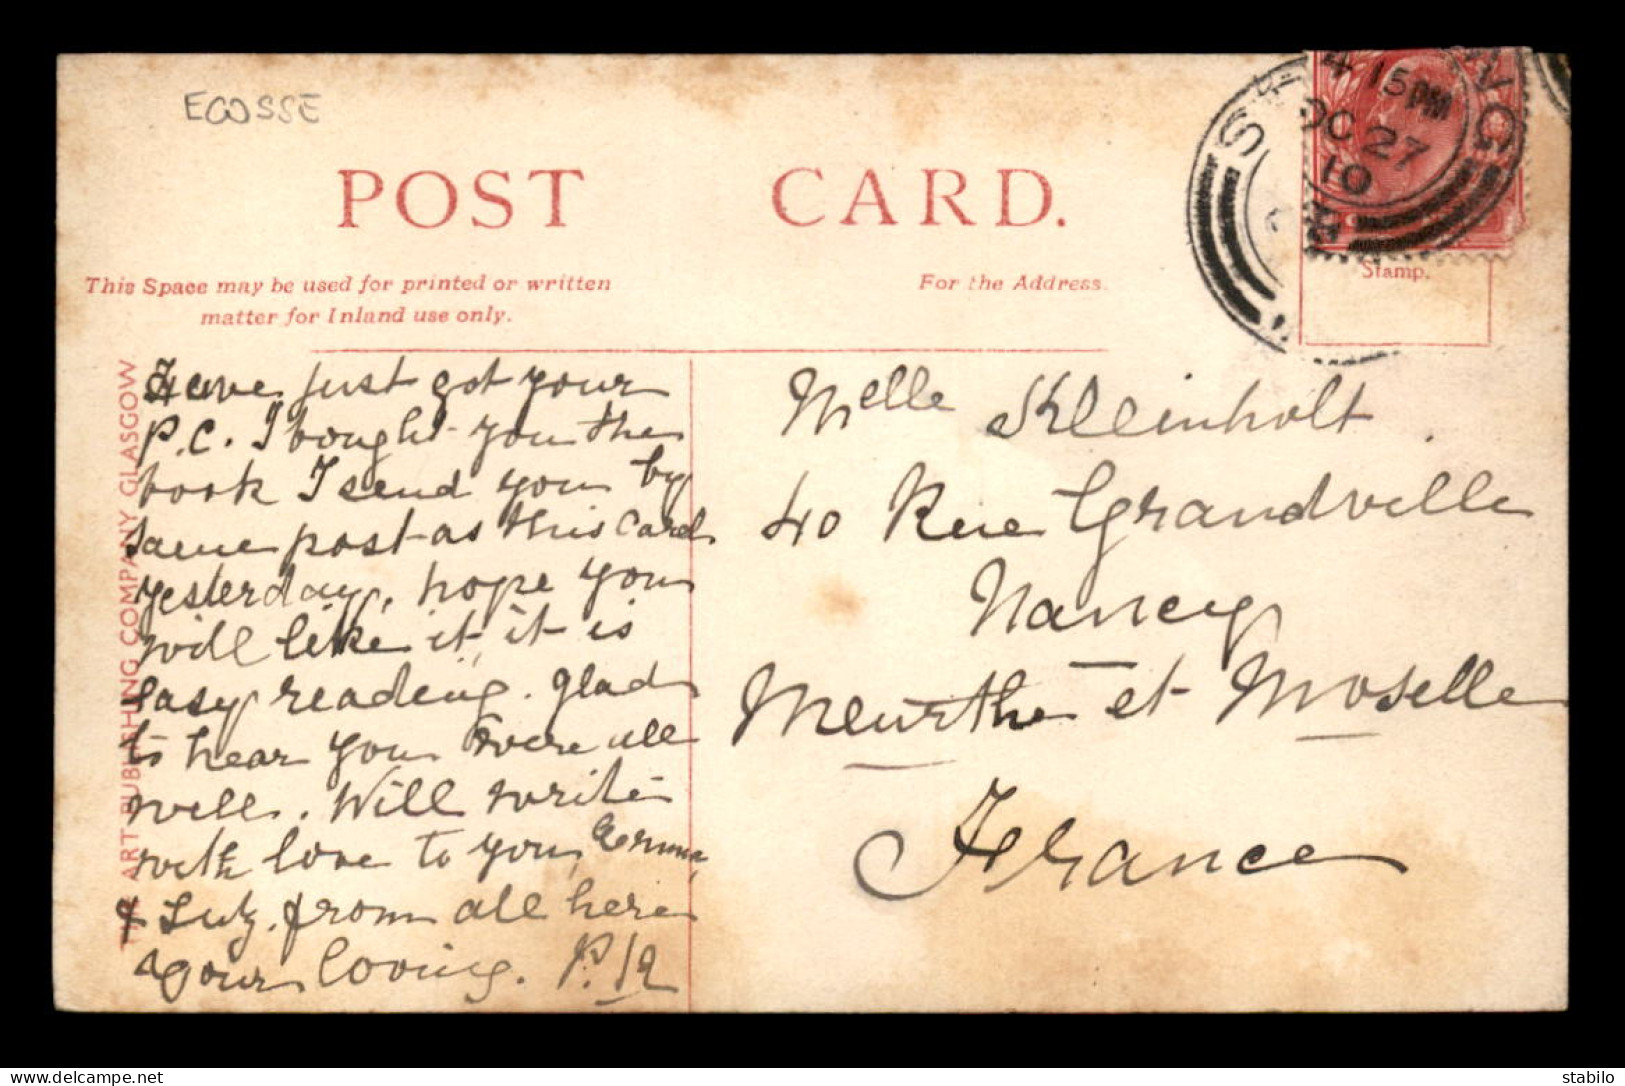 ECOSSE
POST CARD.
This Space may be used for printed or written
matter for Inland use only.
For the Address.
4 15 PM
OC 27
10
Stamp.
ART PUBLISHING COMPANY GLASGOW
Have just got your
P.C. I bought you the
book I send you by
same post as this card
yesterday, hope you
will like it, it is
easy reading. Glad
to hear you were all
well. Will write
with love to you,
& Lutz. from all here
your loving.
Melle Kleinholt
40 Rue Grandville
Nancy
Meurthe et Moselle
France
stabilo